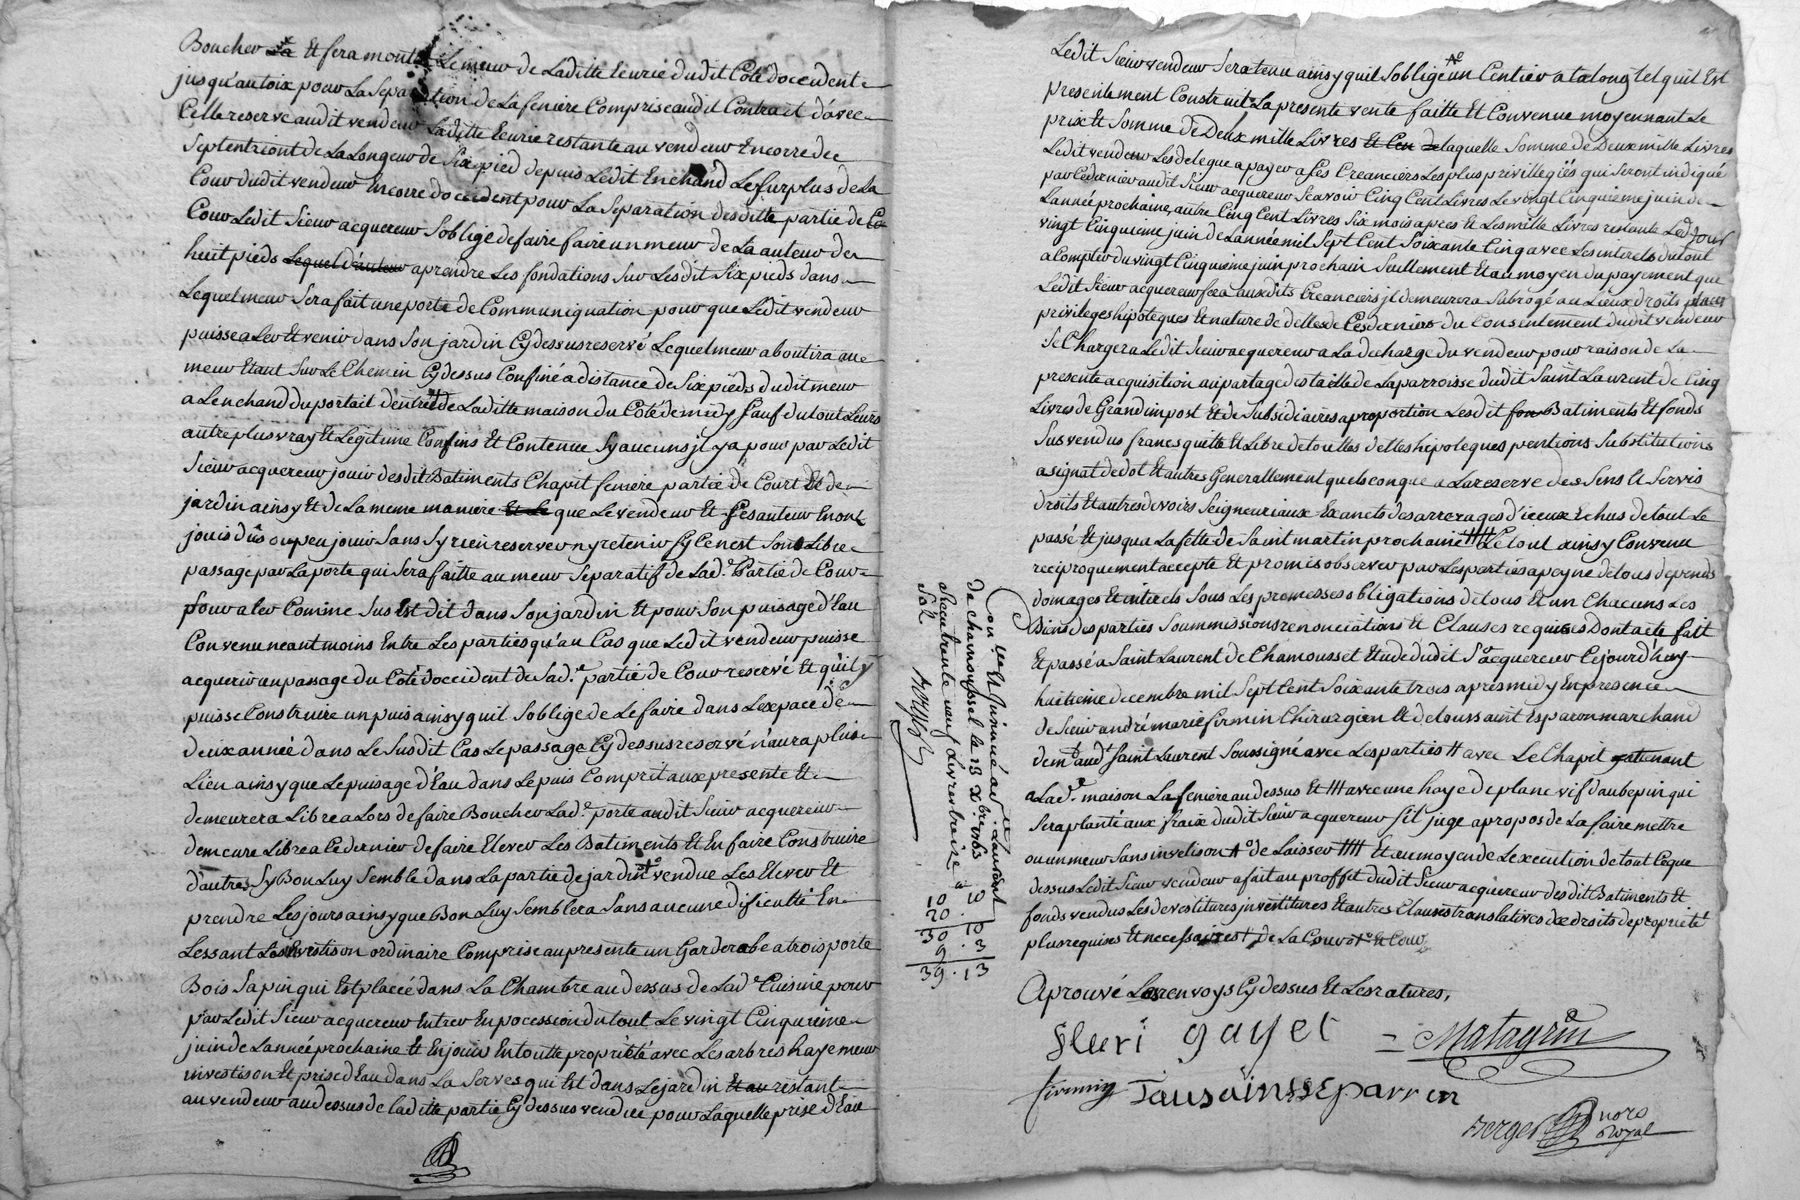 Boucher Et fera monter Le meur de Laditte Ecurie dudit Coté doccident
jusqu'au toix pour La Separation de La feniere Comprise audit Contrait d'avec
Celle reservé audit vendeur Laditte Ecurie restante au vendeur Encorre de
Septentriont de La Longeur de Six pied depuis Ledit Enchand Le surplus de La
Cour dudit vendeur Encorre doccident pour La Separation desditte partie de Co
Cour Ledit Sieur acquereur Soblige de faire faire un meur de La auteur de
huit pieds Lequel d'auteur aprendre Les fondations Sur Lesdit Six pieds dans
Lequel meur Sera fait une porte de Communiquation pour que Ledit vendeur
puisse aler Et venir dans Son jardin Cy dessus reservé Lequel meur aboutira au
meur Etant Sur Le Chemin Cy dessus Confiné a distance de Six pieds dudit meur
a Lenchand du portait d'entrée de Laditte maison du Coté de midy Sauf du tout Leurs
autre plus vray Et Legitime Confins Et Contenue Sy aucuns jl ya pour par Ledit
Sieur acquereur jouir desdit Batiments Chapit feniere partie de Court Et de
jardin ainsy Et de La meme maniere Et Le que Le vendeur Et Ses auteur En ont
jouis dûs ou peu jouir Sans Sy rien reserver ny retenir Sy Ce nest Son Libre
passage par La porte qui Sera faitte au meur Separatif de Lad.e Partie de Cour
pour aler Comme Sus Est dit dans Son jardin Et pour Son puisage d'Eau
Convenu neant moins Entre Les parties qu'au Cas que Ledit vendeur puisse
acquerir un passage du Coté doccident de Sad.e partie de Cour reservé Et quil y
puisse Construire un puis ainsy quil Soblige de Le faire dans Lespace de
deux année dans Le Susdit Cas Le passage Cy dessus reservé n'aura plus
Lieu ainsy que Le puisage d'Eau dans Le puis Comprit aux presente Et
demeurera Libre a Lors de faire Boucher Lad.e porte audit Sieur acquereur
demeure Libre a Ce dernier de faire Elever Les Batiments Et En faire Construire
d'autres Sy Bon Luy Semble dans La partie de jardin vendue Les Elever Et
prendre Les jours ainsy que Bon Luy Semblera Sans aucune dificulté En
Lessant Linvestison ordinaire Comprise au presente un Garderobe a trois porte
Bois Sapin qui Est placée dans La Chambre au dessus de Lad.e Cuisine pour
par Ledit Sieur acquereur Entrer En pocession du tout Le vingt Cinquieme
juin de Lannée prochaine Et En jouir En toutte propriété avec Les arbres haye meur
investison Et prise d'Eau dans La Serves qui Est dans Le jardin Et au restant
au vendeur au dessus de laditte partie Cy dessus vendue pour Laquelle prise d'Eau
Ledit Sieur vendeur Sera tenu ainsy quil Soblige un Centier a talonz tel quil Est
presentement Construit La presente vente faitte Et Convenue moyennant Le
prix Et Somme de Deux mille Livres Et Ceu de laquelle Somme de Deux mille Livres
Ledit vendeur Les delegue a payer a Ses Creanciers Les plus privillegiés qui Seront indiqué
par Ce dernier audit Sieur acquereur Scavoir Cinq Cent Livres Le vingt Cinquieme juin de
Lannée prochaine, autre Cinq Cent Livres Six mois apres Et Les mille Livres restante Led Jour
vingt Cinquieme juin de Lannée mil Sept Cent Soixante Cinq avec Les interets du tout
a Compter du vingt Cinquieme juin prochain Seullement Et au moyen du payement que
Ledit Sieur acquereur fera auxdits Creanciers jl demeurera Subrogé au Lieux droits place
privileges hipoteques Et nature de dettes de Ces derniers du Consentement dudit vendeur
Se Chargera Ledit Sieur acquereur a La decharge du vendeur pour raison de La
presente acquisition au partage des taille de La parroisse dudit Saint Laurent de Cinq
Livres de Grand impost Et de Subsidiaires a proportion Lesdit fon Batiments Et fonds
Sus vendus francs quitte Et Libre de touttes dettes hipoteques pentions Substitutions
asignat de dot Et autres Generallement quelsconque a La reserve des Sens Et Servis
droits Et autres devoirs Seigneuriaux Exancts des arrerages d'iceux Echus de tout Le
passé Et jusqua La fette de Saint martin prochaine Le tout ainsy Convenu
reciproquement accepté Et promis observer par Les parties a peyne de tous depends
domages Et interets Sous Les promesses obligations de tous Et un Chacuns Les
Biens des parties Soummissions renonciations Et Clauses requises Dont acte fait
Et passé a Saint Laurent de Chamousset Etude dudit S.r acquereur Ce jourd'huy
huitieme decembre mil Sept Cent Soixante trois apres midy En presence
de Sieur andré marie firmin Chirurgien Et de toussaint Esparon marchand
dem.t aud.t Saint Laurent Soussigné avec Les parties # avec Le Chapit attenant
a Lad.e maison La feniere au dessus Et ### avec une haye de planc vif daubepin qui
Sera planté aux fraix dudit Sieur acquereur Sil juge apropos de La faire mettre
ou un meur Sans investison de Laisser #### Et au moyen de Lexecution de tout Ce que
dessus Ledit Sieur vendeur a fait au proffit dudit Sieur acquereur desdit Batiments Et
fonds vendus Les devestitures investitures Et autres Clauses translatives de droits de propriété
plus requises Et necessaires de La Cour Et Cour
Aprouvé Les renvoys Cy dessus Et Les ratures,
fleuri gayet
Matagrin
firmin
Tousainss Eparron
Berger
nore
Royal
Con.lé Et Insinué a S.t Laurent
De chamousset le 13 Xbre 1763
Recu trente neuf Livres treize
sols
Berger
10 10
20
30 10
9 3
39 13